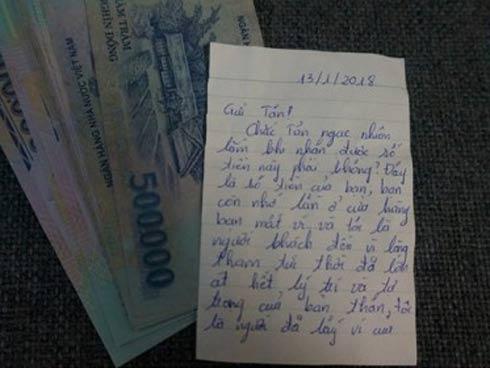 TRĂM
NGHÌN ĐỒNG
NGÂN HÀNG NHÀ NƯỚC VIỆT NAM
500000
NGÂN
13/1/2018
Gửi Tấn!
Chắc Tấn ngạc nhiên
lắm khi nhận được số
tiền này phải không? Đây
là số tiền của bạn, bạn
còn nhớ lần ở cửa hàng
bạn mất ví và tôi là
người khách đó vì lòng
tham tức thời đã lấn
át hết lý trí và tự
trọng của bản thân, tôi
là người đã lấy ví của